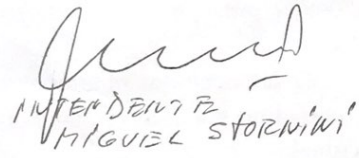 INTENDENTE
MIGUEL STORNINI